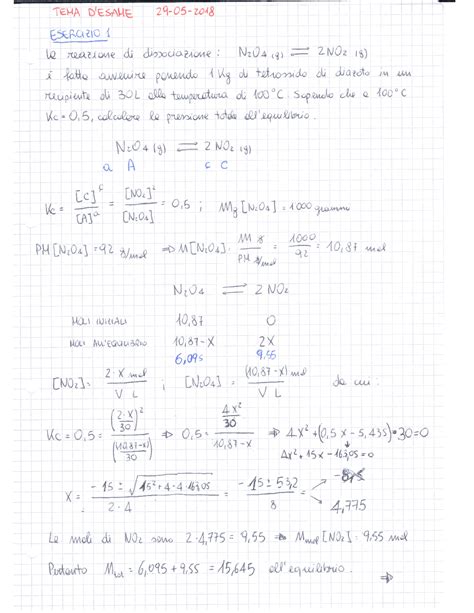 TEMA D'ESAME 29-05-2018
ESERCIZIO 1
La reazione di dissociazione: N2O4 (g) ⇌ 2NO2 (g)
è fatta avvenire ponendo 1 Kg di tetrossido di diazoto in un
recipiente di 30L alla temperatura di 100°C. Sapendo che a 100°C
Kc = 0,5, calcolare la pressione totale all'equilibrio.
N2O4 (g) ⇌ 2 NO2 (g)
a A c C
Kc = [C]^c / [A]^a = [NO2]² / [N2O4] = 0,5 ; Mg [N2O4] = 1000 grammi
PM [N2O4] = 92 g/mol ⇒ M[N2O4] = M g / PM g/mol = 1000 / 92 = 10,87 mol
N2O4 ⇌ 2 NO2
MOLI INIZIALI 10,87 0
MOLI ALL'EQUILIBRIO 10,87-X 2X
6,095 9,55
[NO2] = 2·X mol / V L ; [N2O4] = (10,87-X) mol / V L da cui:
Kc = 0,5 = (2·X / 30)² / ((10,87-X) / 30) ⇒ 0,5 = (4X² / 30) / (10,87-X) ⇒ 4X² + (0,5X - 5,435)·30 = 0
4X² + 15X - 163,05 = 0
X = (-15 ± √(15² + 4·4·163,05)) / (2·4) = (-15 ± 53,2) / 8 = 4,775
Le moli di NO2 sono 2·4,775 = 9,55 ⇒ Mmol [NO2] = 9,55 mol
Pertanto Mtot = 6,095 + 9,55 = 15,645 all'equilibrio. ⇒